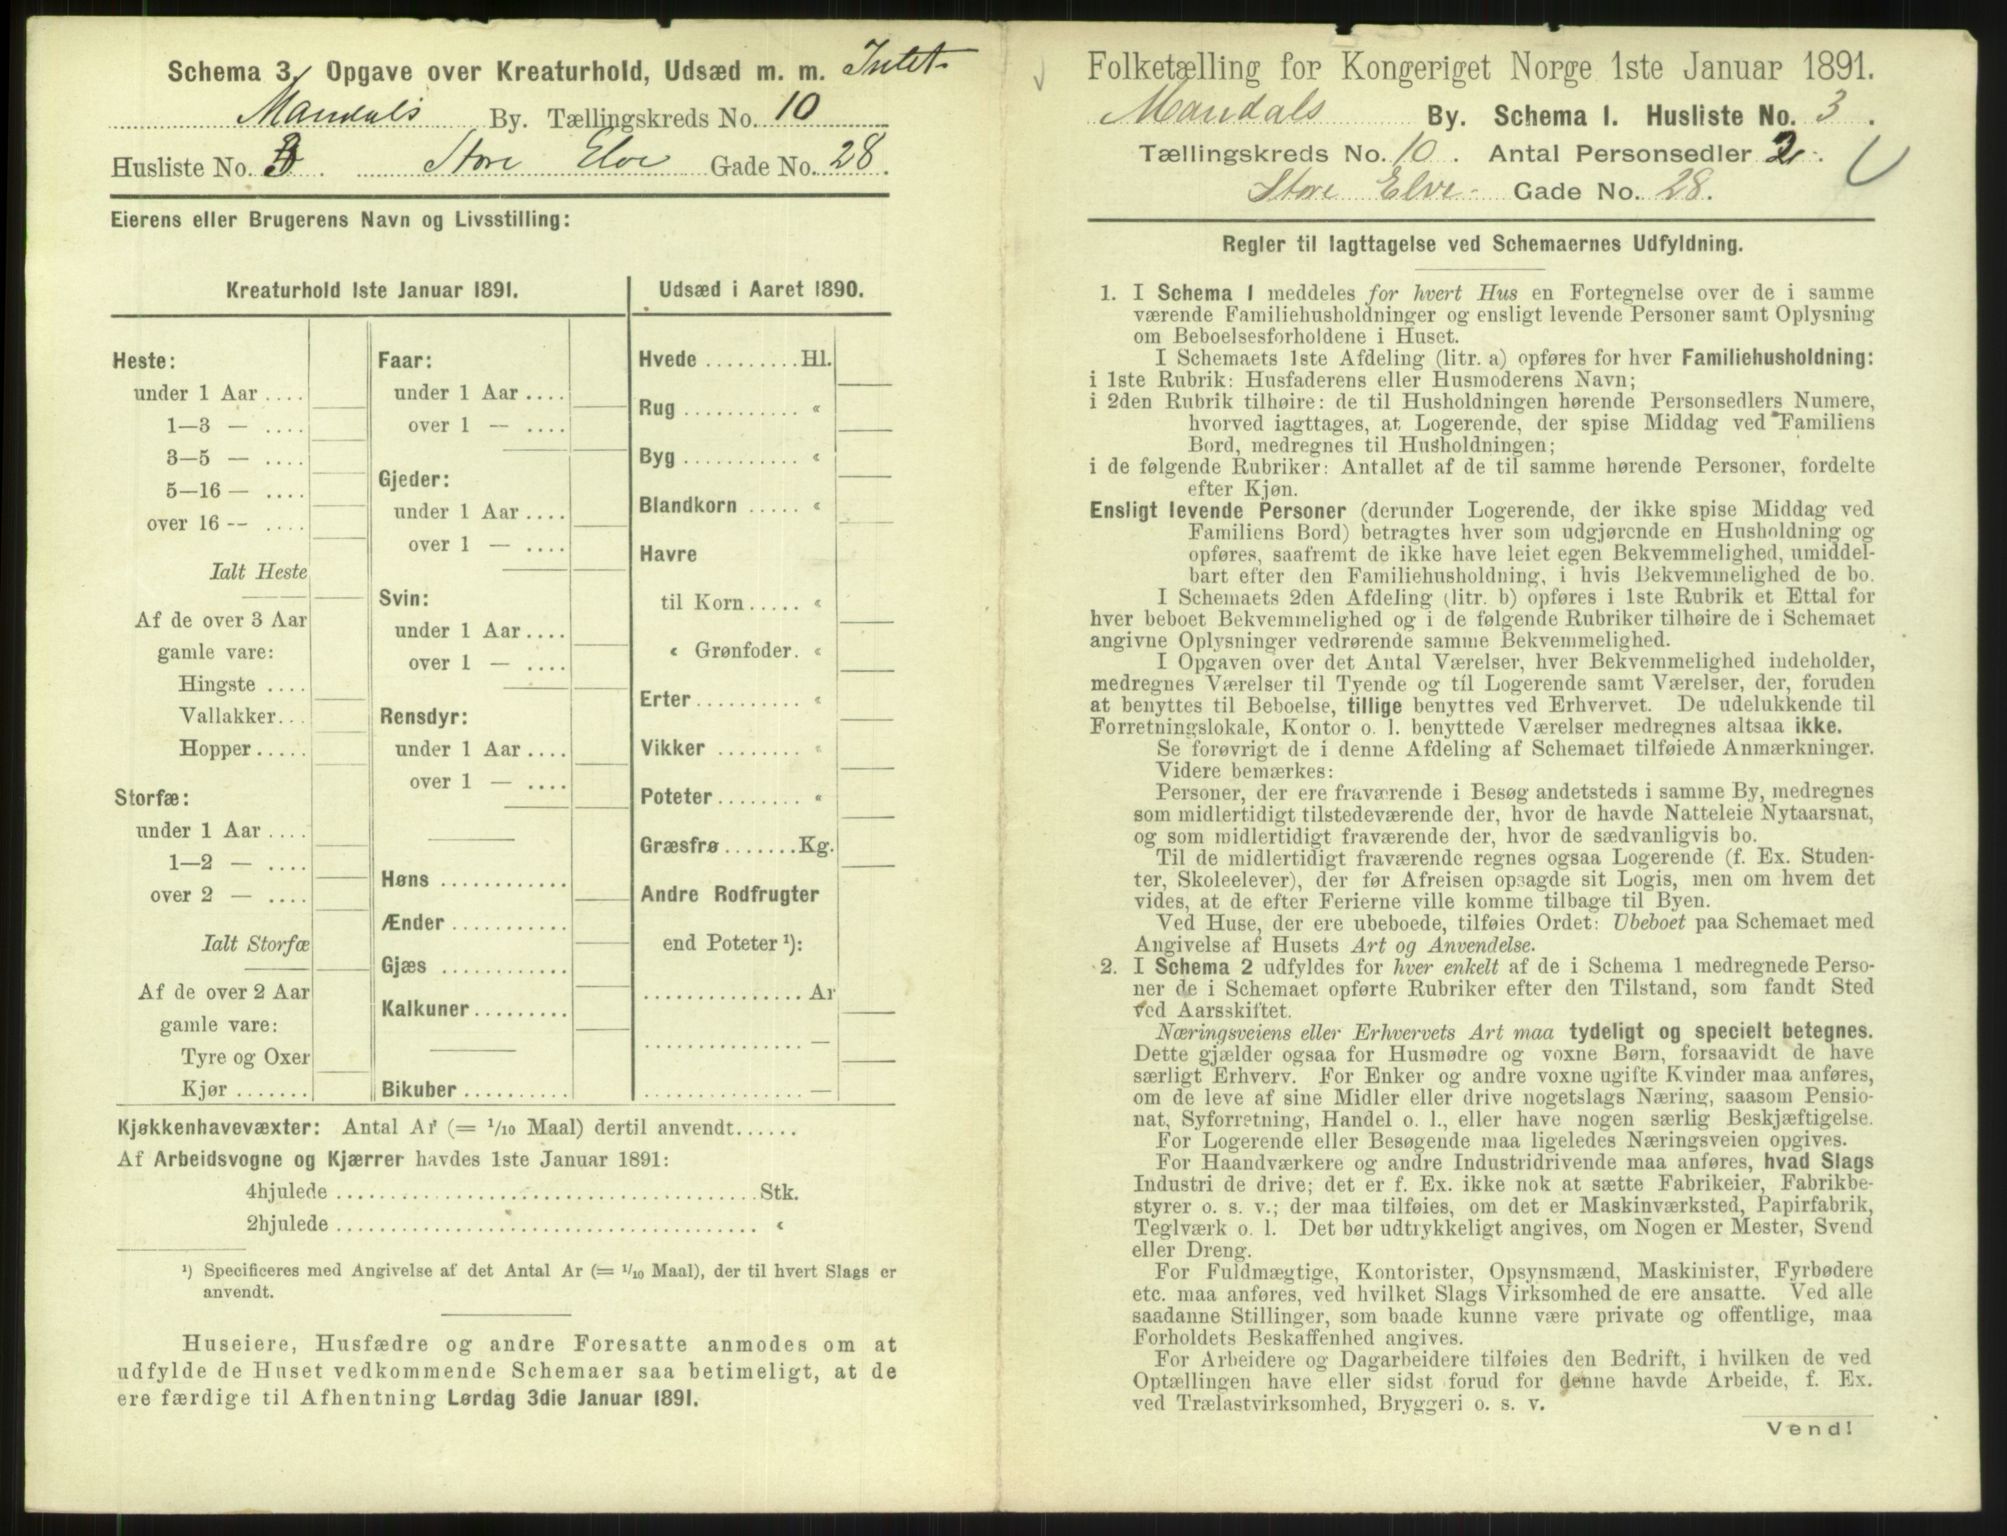 Schema 3. Opgave over Kreaturhold, Udsæd m. m. Intet
Mandals By. Tællingskreds No. 10
Husliste No. 3. Store Elve Gade No. 28.
Eierens eller Brugerens Navn og Livsstilling:
Kreaturhold 1ste Januar 1891.
Heste:
under 1 Aar ....
1—3 — ....
3—5 — ....
5—16 — ....
over 16 -- ....
Ialt Heste
Af de over 3 Aar
gamle vare:
Hingste ....
Vallakker...
Hopper.....
Storfæ:
under 1 Aar ....
1—2 — ....
over 2 — ....
Ialt Storfæ
Af de over 2 Aar
gamle vare:
Tyre og Oxer
Kjør.......
Faar:
under 1 Aar ....
over 1 — ....
Gjeder:
under 1 Aar ....
over 1 — ....
Svin:
under 1 Aar ....
over 1 — ....
Rensdyr:
under 1 Aar ....
over 1 — ....
Høns ............
Ænder ...........
Gjæs ............
Kalkuner.........
Bikuber..........
Udsæd i Aaret 1890.
Hvede .........Hl.
Rug ........... «
Byg ........... «
Blandkorn ..... «
Havre
til Korn..... «
« Grønfoder. «
Erter.......... «
Vikker ........ «
Poteter........ «
Græsfrø.......Kg.
Andre Rodfrugter
end Poteter ¹):
............... Ar
............... —
............... —
Kjøkkenhavevæxter: Antal Ar (= 1/10 Maal) dertil anvendt......
Af Arbeidsvogne og Kjærrer havdes 1ste Januar 1891:
4hjulede ........................................Stk.
2hjulede ........................................ «
¹) Specificeres med Angivelse af det Antal Ar (= 1/10 Maal), der til hvert Slags er
anvendt.
Huseiere, Husfædre og andre Foresatte anmodes om at
udfylde de Huset vedkommende Schemaer saa betimeligt, at de
ere færdige til Afhentning Lørdag 3die Januar 1891.
Folketælling for Kongeriget Norge 1ste Januar 1891.
Mandals By. Schema I. Husliste No. 3.
Tællingskreds No. 10. Antal Personsedler 2.
Store Elve Gade No. 28.
Regler til Iagttagelse ved Schemaernes Udfyldning.
1. I Schema I meddeles for hvert Hus en Fortegnelse over de i samme
værende Familiehusholdninger og ensligt levende Personer samt Oplysning
om Beboelsesforholdene i Huset.
I Schemaets 1ste Afdeling (litr. a) opføres for hver Familiehusholdning:
i 1ste Rubrik: Husfaderens eller Husmoderens Navn;
i 2den Rubrik tilhøire: de til Husholdningen hørende Personsedlers Numere,
hvorved iagttages, at Logerende, der spise Middag ved Familiens
Bord, medregnes til Husholdningen;
i de følgende Rubriker: Antallet af de til samme hørende Personer, fordelte
efter Kjøn.
Ensligt levende Personer (derunder Logerende, der ikke spise Middag ved
Familiens Bord) betragtes hver som udgjørende en Husholdning og
opføres, saafremt de ikke have leiet egen Bekvemmelighed, umiddel-
bart efter den Familiehusholdning, i hvis Bekvemmelighed de bo.
I Schemaets 2den Afdeling (litr. b) opføres i 1ste Rubrik et Ettal for
hver beboet Bekvemmelighed og i de følgende Rubriker tilhøire de i Schemaet
angivne Oplysninger vedrørende samme Bekvemmelighed.
I Opgaven over det Antal Værelser, hver Bekvemmelighed indeholder,
medregnes Værelser til Tyende og til Logerende samt Værelser, der, foruden
at benyttes til Beboelse, tillige benyttes ved Erhvervet. De udelukkende til
Forretningslokale, Kontor o. l. benyttede Værelser medregnes altsaa ikke.
Se forøvrigt de i denne Afdeling af Schemaet tilføiede Anmærkninger.
Videre bemærkes:
Personer, der ere fraværende i Besøg andetsteds i samme By, medregnes
som midlertidigt tilstedeværende der, hvor de havde Natteleie Nytaarsnat,
og som midlertidigt fraværende der, hvor de sædvanligvis bo.
Til de midlertidigt fraværende regnes ogsaa Logerende (f. Ex. Studen-
ter, Skoleelever), der før Afreisen opsagde sit Logis, men om hvem det
vides, at de efter Ferierne ville komme tilbage til Byen.
Ved Huse, der ere ubeboede, tilføies Ordet: Ubeboet paa Schemaet med
Angivelse af Husets Art og Anvendelse.
2. I Schema 2 udfyldes for hver enkelt af de i Schema 1 medregnede Perso-
ner de i Schemaet opførte Rubriker efter den Tilstand, som fandt Sted
ved Aarsskiftet.
Næringsveiens eller Erhvervets Art maa tydeligt og specielt betegnes.
Dette gjælder ogsaa for Husmødre og voxne Børn, forsaavidt de have
særligt Erhverv. For Enker og andre voxne ugifte Kvinder maa anføres,
om de leve af sine Midler eller drive nogetslags Næring, saasom Pensio-
nat, Syforretning, Handel o. l., eller have nogen særlig Beskjæftigelse.
For Logerende eller Besøgende maa ligeledes Næringsveien opgives.
For Haandværkere og andre Industridrivende maa anføres, hvad Slags
Industri de drive; det er f. Ex. ikke nok at sætte Fabrikeier, Fabrikbe-
styrer o. s. v.; der maa tilføies, om det er Maskinværksted, Papirfabrik,
Teglværk o. l. Det bør udtrykkeligt angives, om Nogen er Mester, Svend
eller Dreng.
For Fuldmægtige, Kontorister, Opsynsmænd, Maskinister, Fyrbødere
etc. maa anføres, ved hvilket Slags Virksomhed de ere ansatte. Ved alle
saadanne Stillinger, som baade kunne være private og offentlige, maa
Forholdets Beskaffenhed angives.
For Arbeidere og Dagarbeidere tilføies den Bedrift, i hvilken de ved
Optællingen have eller sidst forud for denne havde Arbeide, f. Ex.
ved Trælastvirksomhed, Bryggeri o. s. v.
Vend!